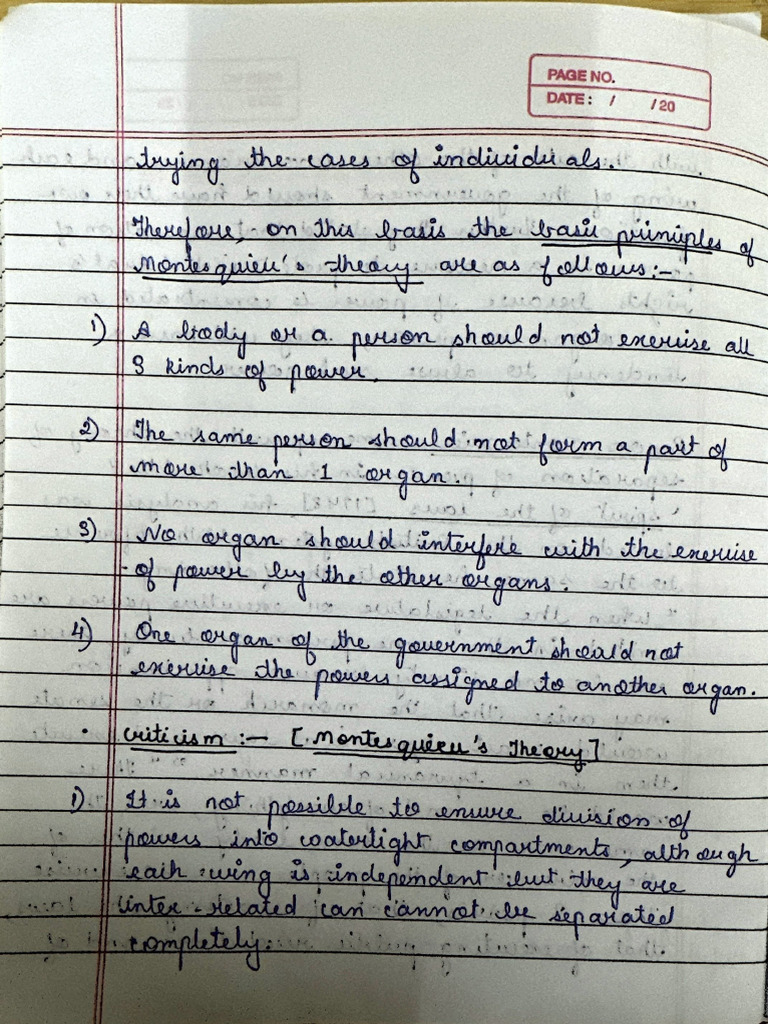 PAGE NO.
DATE: / /20
trying the cases of individuals.
Therefore, on this basis the basic principles of
Montesquieu's Theory are as follows:-
1) A body or a person should not exercise all
3 kinds of power.
2) The same person should not form a part of
more than 1 organ.
3) No organ should interfere with the exercise
of power by the other organs.
4) One organ of the government should not
exercise the powers assigned to another organ.
• Criticism :- [Montesquieu's Theory]
1) It is not possible to ensure division of
powers into watertight compartments, although
each wing is independent but they are
inter-related can cannot be separated
completely.